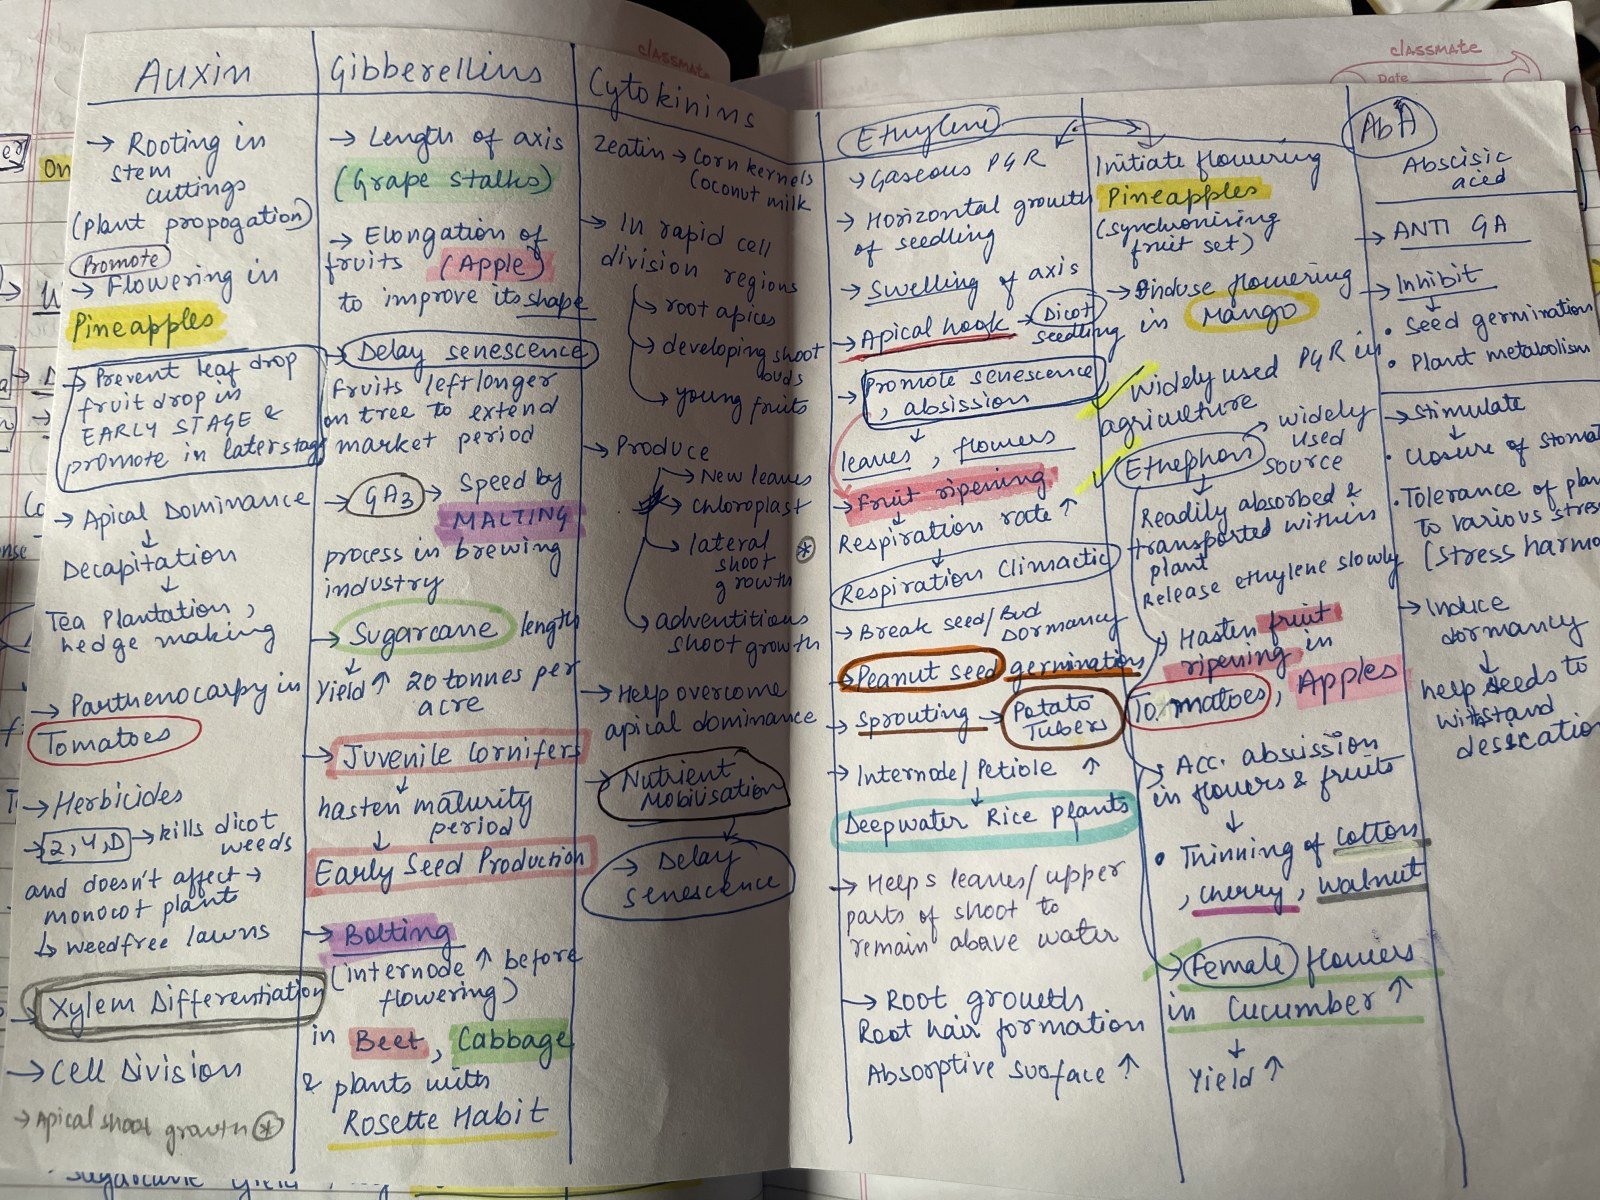 Auxin
→ Rooting in
stem
cuttings
(plant propogation)
Promote
→ Flowering in
Pineapples
→ Prevent leaf drop
fruit drop in
EARLY STAGE &
promote in later stage
→ Apical Dominance
↓
Decapitation
↓
Tea Plantation,
hedge making
→ Parthenocarpy in
Tomatoes
→ Herbicides
→ 2,4,D → kills dicot
weeds
and doesn't affect →
monocot plants
↳ weedfree lawns
Xylem Differentiation
→ Cell Division
→ Apical shoot growth *
Gibberellins
→ Length of axis
(Grape stalks)
→ Elongation of
fruits (Apple)
to improve its shape
→ Delay senescence
fruits left longer
on tree to extend
market period
→ GA3 → Speed by
MALTING
process in brewing
industry
→ Sugarcane length
↓
Yield ↑ 20 tonnes per
acre
→ Juvenile Cornifers
↓
hasten maturity
period
↓
Early Seed Production
→ Bolting
(internode ↑ before
flowering)
in Beet, Cabbage
& plants with
Rosette Habit
classmate
Cytokinins
Zeatin → Corn kernels
Coconut milk
→ In rapid cell
division regions
→ root apices
→ developing shoot
buds
→ young fruits
→ Produce
→ New leaves
→ Chloroplast
→ lateral *
shoot
growth
→ adventitious
shoot growth
→ Help overcome
apical dominance
→ Nutrient
Mobilisation
↓
→ Delay
senescence
Ethylene
→ Gaseous PGR
→ Horizontal growth
of seedling
→ Swelling of axis
→ Apical hook → Dicot
seedling
→ Promote senescence
, absission
↓
leaves, flowers
→ Fruit ripening
↓
Respiration rate ↑
↓
Respiration Climactic
→ Break seed/Bud
Dormancy
→ Peanut seed germination
→ Sprouting → Potato
Tubers
→ Internode/Petiole ↑
↓
Deepwater Rice plants
→ Helps leaves/upper
parts of shoot to
remain above water
→ Root growth
Root hair formation
Absorptive surface ↑
classmate
Date
Initiate flowering
Pineapples
(synchronising
fruit set)
→ Induse flowering
in Mango
Widely used PGR in
agriculture
Ethephon → widely
used
source
Readily absorbed &
transported within
plant
Release ethylene slowly
Hasten fruit
ripening in
Tomatoes, Apples
→ Acc. abscission
in flowers & fruits
↓
• Thinning of cotton
, cherry, walnut
→ Female flowers
in Cucumber ↑
↓
Yield ↑
AbA
Abscisic
acied
→ ANTI GA
→ Inhibit
↓
• Seed germination
• Plant metabolism
→ Stimulate
↓
• Closure of stomat
• Tolerance of plan
to various stress
(stress harmo
→ Induce
dormancy
↓
help seeds to
withstand
dessication
On